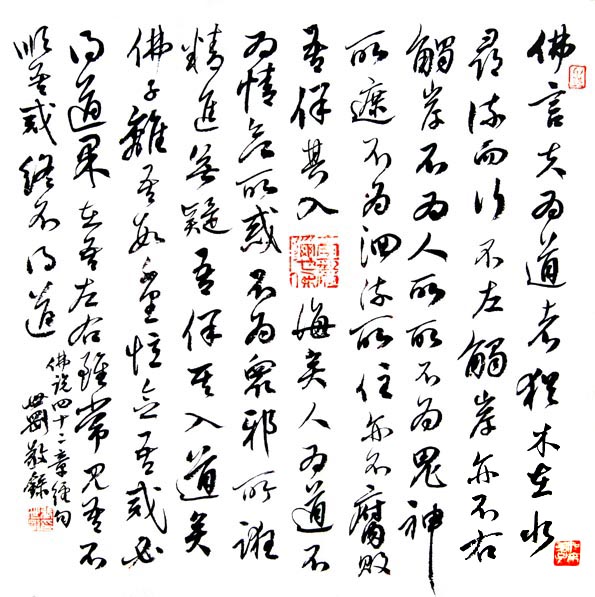 佛言夫为道者犹木在水
尋流而行不左觸岸亦不右
觸岸不为人所取不为鬼神
所遮不为洄流所住亦不腐敗
吾保其入海矣人为道不
为情欲所惑不为眾邪所誑
精進無疑吾保其入道矣
佛子離吾数千里憶念吾戒必
得道果在吾左右雖常見吾不
順吾戒終不得道
佛说四十二章经句
敬錄